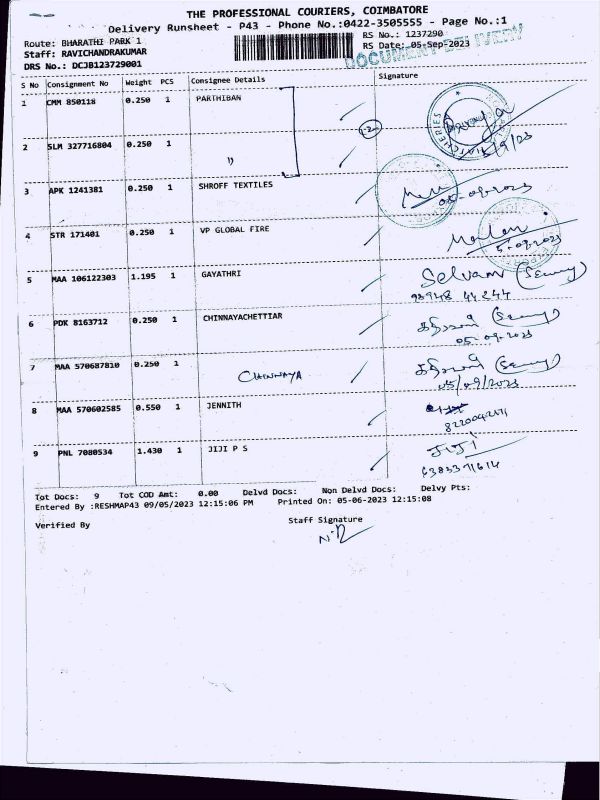 THE PROFESSIONAL COURIERS, COIMBATORE
Delivery Runsheet - P43 - Phone No.:0422-3505555 - Page No.:1
Route: BHARATHI PARK 1
RS No.: 1237290
Staff: RAVICHANDRAKUMAR
RS Date: 05-Sep-2023
DRS No.: DCJB123729001
DOCUMENT DELIVERY
S No Consignment No Weight PCS Consignee Details Signature
1 CMM 850118 0.250 1 PARTHIBAN
2 SLM 327716804 0.250 1 "
5/9/23
3 APK 1241381 0.250 1 SHROFF TEXTILES
05-09-2023
4 STR 171401 0.250 1 VP GLOBAL FIRE
5-09-2023
5 MAA 106122303 1.195 1 GAYATHRI Selvam
98948 44244
6 PDK 8163712 0.250 1 CHINNAYACHETTIAR
05-09-2023
7 MAA 570687810 0.250 1 CHINNAYA
05/09/2023
8 MAA 570602585 0.550 1 JENNITH
9 PNL 7080534 1.430 1 JIJI P S JiJi
Tot Docs: 9 Tot COD Amt: 0.00 Delvd Docs: Non Delvd Docs: Delvy Pts:
Entered By :RESHMAP43 09/05/2023 12:15:06 PM Printed On: 05-06-2023 12:15:08
Verified By Staff Signature